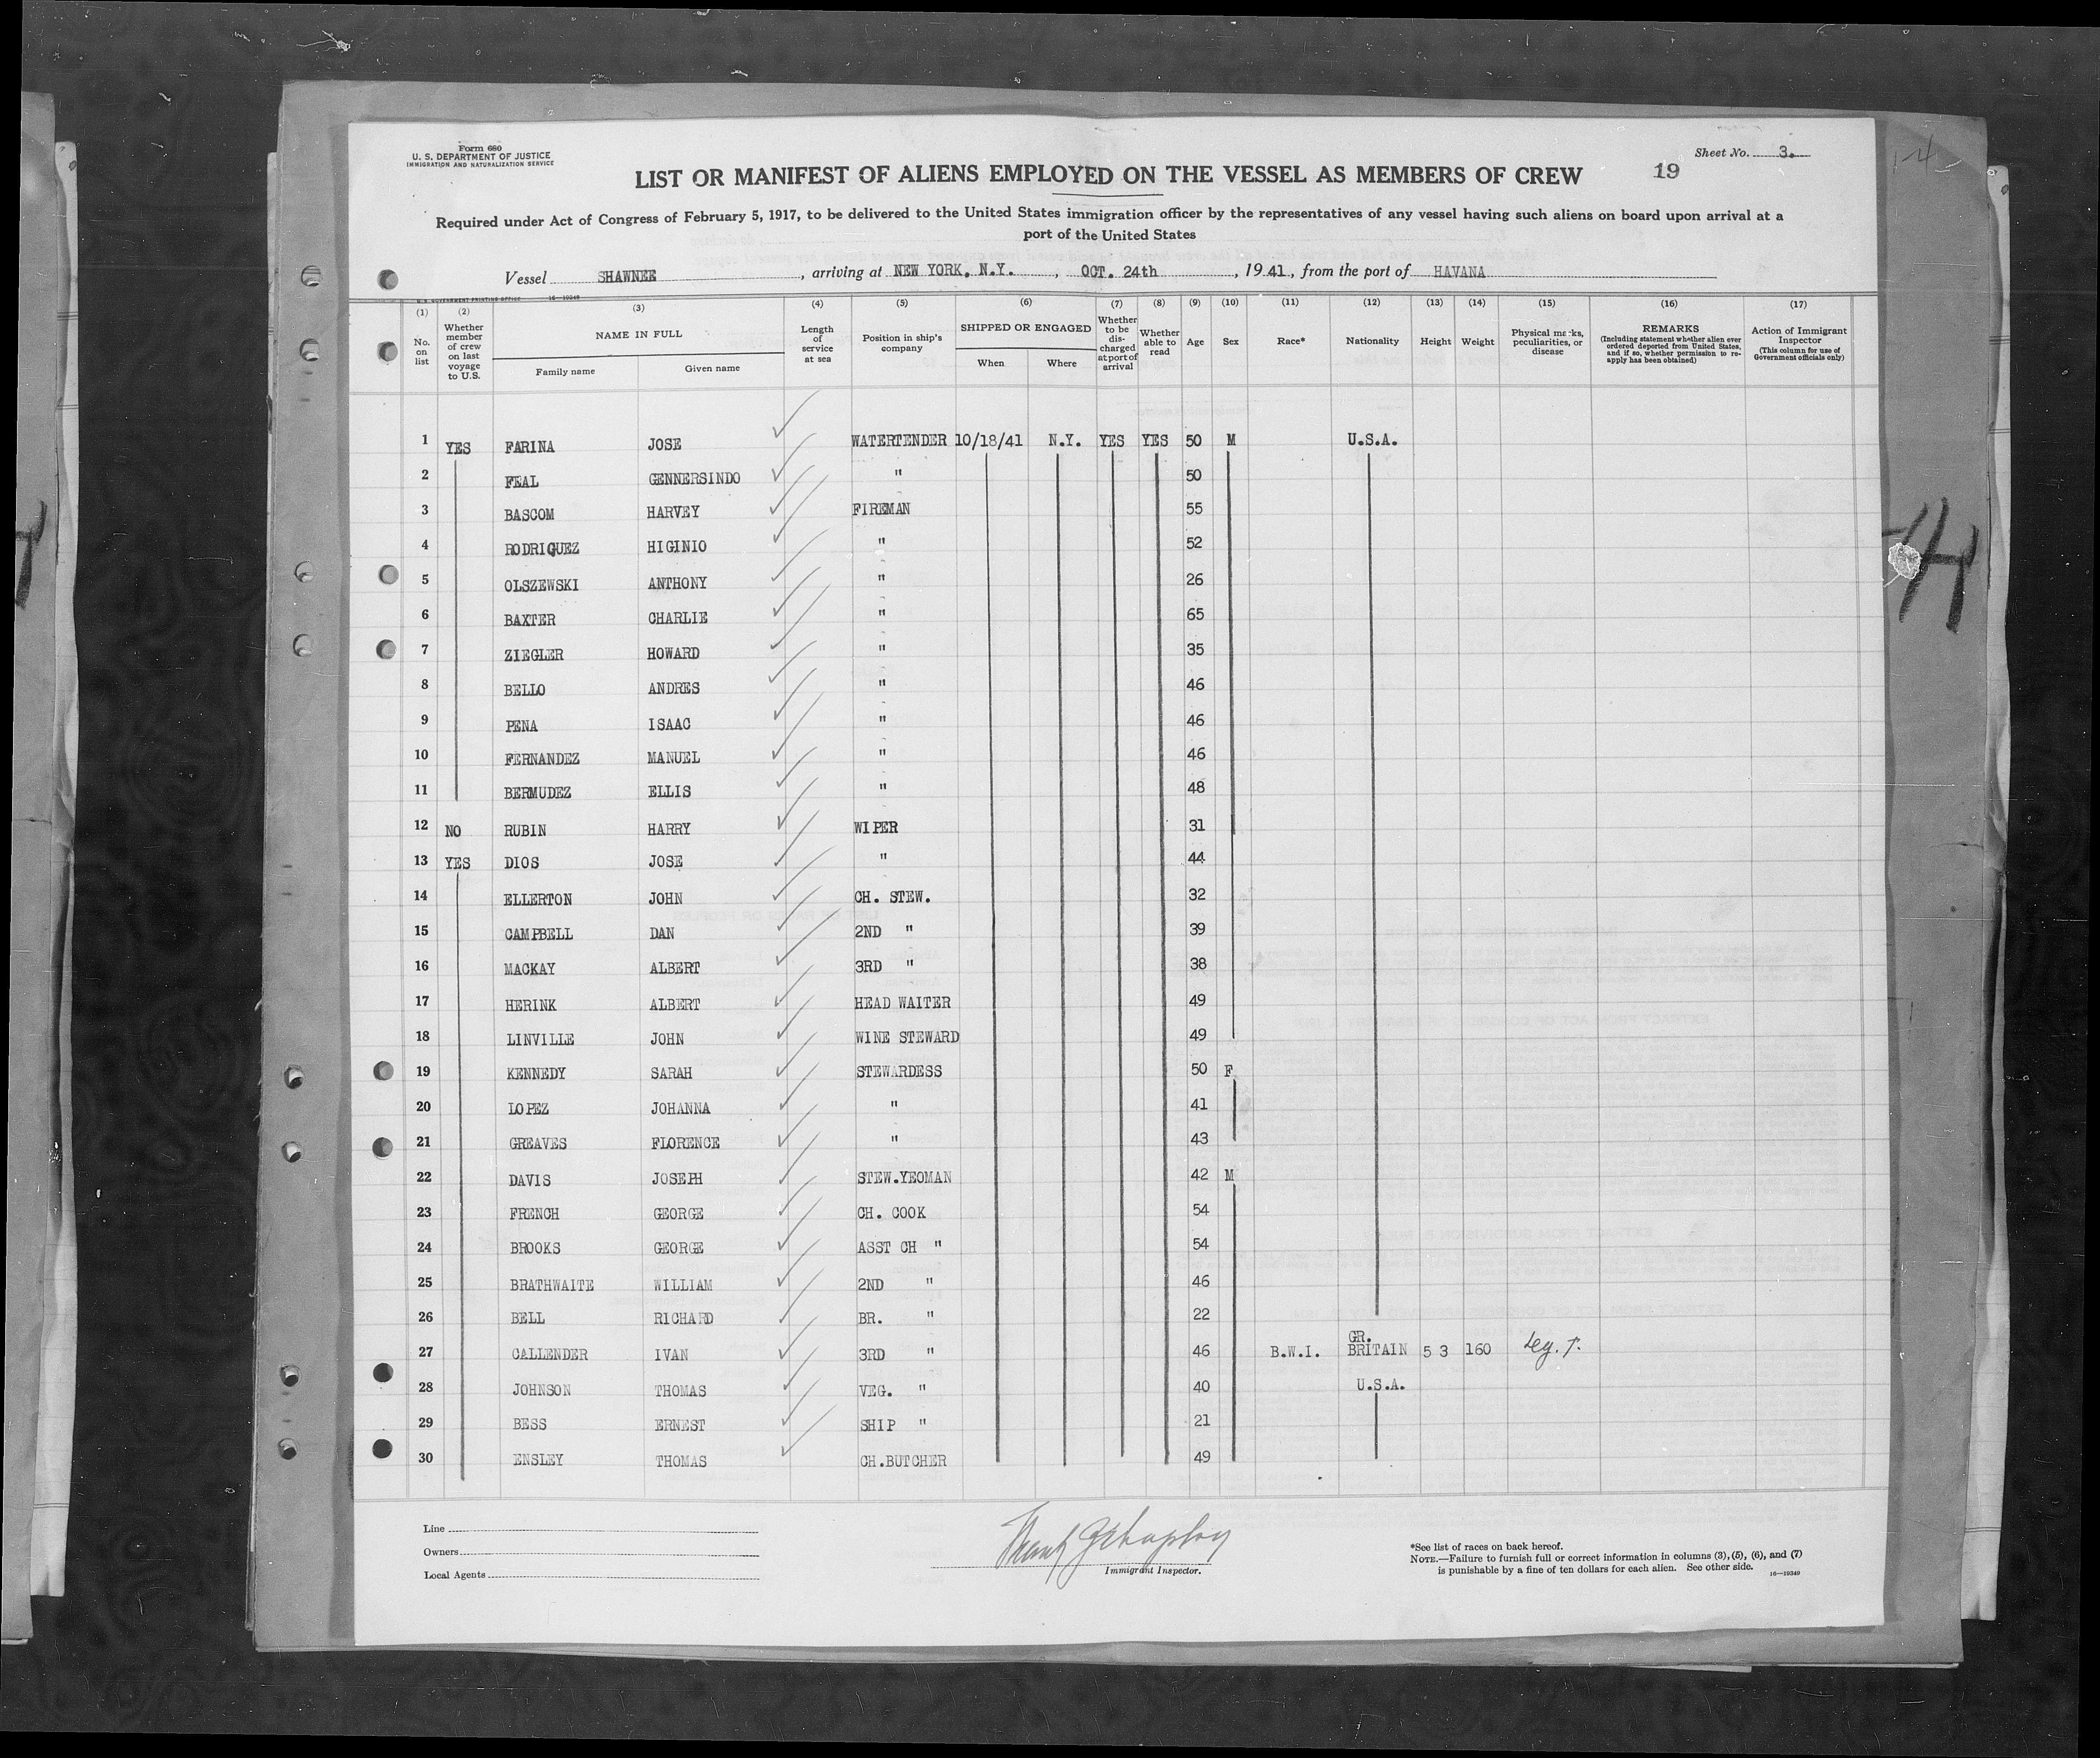 Form 680
U. S. DEPARTMENT OF JUSTICE
IMMIGRATION AND NATURALIZATION SERVICE
Sheet No. 3.
LIST OR MANIFEST OF ALIENS EMPLOYED ON THE VESSEL AS MEMBERS OF CREW
19
Required under Act of Congress of February 5, 1917, to be delivered to the United States immigration officer by the representatives of any vessel having such aliens on board upon arrival at a
port of the United States
Vessel SHAWNEE, arriving at NEW YORK, N.Y., OCT. 24th, 1941, from the port of HAVANA
U.S. GOVERNMENT PRINTING OFFICE 16—19349
(1) No. on list
(2) Whether member of crew on last voyage to U.S.
(3) NAME IN FULL
Family name Given name
(4) Length of service at sea
(5) Position in ship's company
(6) SHIPPED OR ENGAGED
When Where
(7) Whether to be discharged at port of arrival
(8) Whether able to read
(9) Age
(10) Sex
(11) Race*
(12) Nationality
(13) Height
(14) Weight
(15) Physical marks, peculiarities, or disease
(16) REMARKS (Including statement whether alien ever ordered deported from United States, and if so, whether permission to re-apply has been obtained)
(17) Action of Immigrant Inspector (This column for use of Government officials only)
1 YES FARINA JOSE WATERTENDER 10/18/41 N.Y. YES YES 50 M U.S.A.
2 FEAL GENNERSINDO " 50
3 BASCOM HARVEY FIREMAN 55
4 RODRIQUEZ HIGINIO " 52
5 OLSZEWSKI ANTHONY " 26
6 BAXTER CHARLIE " 65
7 ZIEGLER HOWARD " 35
8 BELLO ANDRES " 46
9 PENA ISAAC " 46
10 FERNANDEZ MANUEL " 46
11 BERMUDEZ ELLIS " 48
12 NO RUBIN HARRY WIPER 31
13 YES DIOS JOSE " 44
14 ELLERTON JOHN CH. STEW. 32
15 CAMPBELL DAN 2ND " 39
16 MACKAY ALBERT 3RD " 38
17 HERINK ALBERT HEAD WAITER 49
18 LINVILLE JOHN WINE STEWARD 49
19 KENNEDY SARAH STEWARDESS 50 F
20 LOPEZ JOHANNA " 41
21 GREAVES FLORENCE " 43
22 DAVIS JOSEPH STEW.YEOMAN 42 M
23 FRENCH GEORGE CH. COOK 54
24 BROOKS GEORGE ASST CH " 54
25 BRATHWAITE WILLIAM 2ND " 46
26 BELL RICHARD BR. " 22
27 CALLENDER IVAN 3RD " 46 B.W.I. GR. BRITAIN 5 3 160
28 JOHNSON THOMAS VEG. " 40 U.S.A.
29 BESS ERNEST SHIP " 21
30 ENSLEY THOMAS CH.BUTCHER 49
Line
Owners
Local Agents
Immigrant Inspector.
*See list of races on back hereof.
NOTE.—Failure to furnish full or correct information in columns (3), (5), (6), and (7)
is punishable by a fine of ten dollars for each alien. See other side.
16—19349